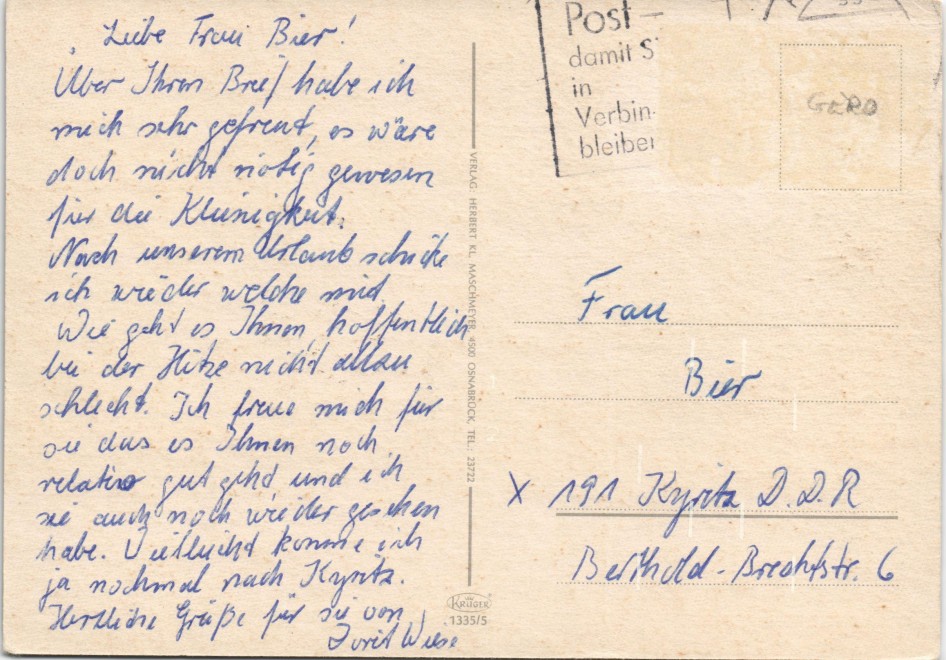 Liebe Frau Bier!
Über Ihren Brief habe ich
mich sehr gefreut, es wäre
doch nicht nötig gewesen
für die Kleinigkeit.
Nach unserem Urlaub schicke
ich wieder welche mit
Wie geht es Ihnen, hoffentlich
bei der Hitze nicht allzu
schlecht. Ich freue mich für
sie das es Ihnen noch
relativ gut geht und ich
sie auch noch wieder gesehen
habe. Vielleicht komme ich
ja nochmal nach Kyritz.
Herzliche Grüße für sie von
Wiese
VERLAG: HERBERT KL. MASCHMEYER 4500 OSNABRÜCK, TEL.: 23722
KRÜGER
1335/5
Post
damit S
in
Verbin-
bleiben
GERO
Frau
Bier
X 191 Kyritz D.D.R
Berthold-Brechtstr. 6